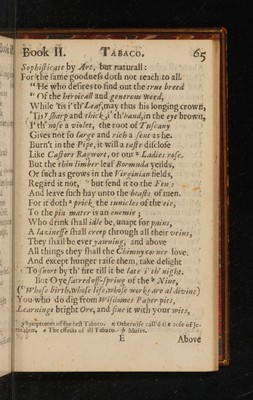 Book II. TABACO. 65
Sophisticate by Art, but naturall:
For the same goodness doth not reach to all.
" He who desires to find out the true breed
" Of the heroicall and generous weed,
While 'tis i' th' Leaf, may thus his longing crown,
'Tis y sharp and thick i' th' hand, in the eye brown,
I' th' nose a violet, the root of Tuscany
Gives not so large and rich a sent as he.
Burn't in the Pipe, it will a taste disclose
Like Castors Ragwort, or our z Ladies rose.
But the thin limber leaf Bermuda yeilds,
Or such as grows in the Virginian fields,
Regard it not, but send it to the Fen;
And leave such hay unto the beasts of men.
For it doth a prick the tunicles of the eie,
To the pia mater is an enemie;
Who drink shall idle be, unapt for pains,
A lazinesse shall creep through all their veins,
They shall be ever yawning, and above
All things they shall the Chimney corner love.
And except hunger raise them, take delight
To snore by th' fire till it be late i' th' night.
But O ye sacred off-spring of the b Nine,
(" Whose birth, whose life, whose works are al divine)
You who do dig from Wisdomes Paper pits,
Learnings bright Ore, and fine it with your wits,
y Symptomes of the best Tabaco. z Otherwise call'd the rose of Je-
rusalem. a The effects of ill Tabaco. b Muses.
E Above